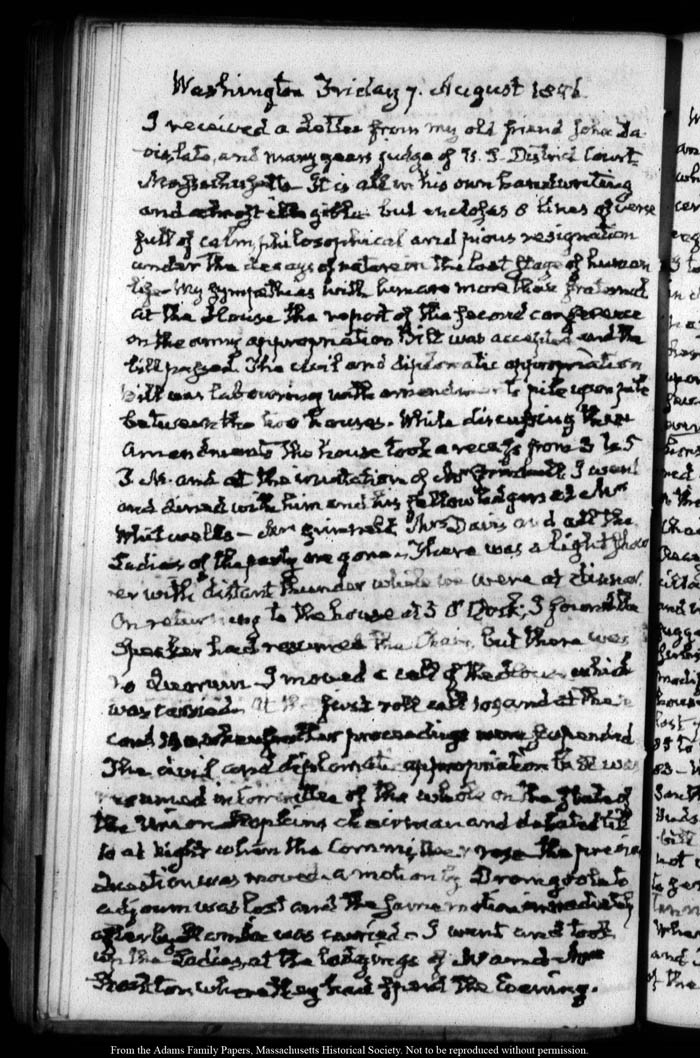 Washington Friday 7. August 1846
I received a Letter from my old friend John Da-
vis, late, and many years judge of U. S. District Court
Massachusetts. It is all in his own handwriting
and almost illegible but encloses 8 lines of verse
full of calm, philosophical and pious resignation
under the decays of nature in the last stage of human
life. My sympathies with him are more than fraternal
at the House the report of the second conference
on the army appropriation Bill was accepted and the
bill passed. The civil and diplomatic appropriation
Bill was labouring with amendments pile upon pile
between the two houses. While discussing these
amendments the house took a recess from 3 to 5
P. M. and at the invitation of Mr Grinnell, I went
and dined with him and his fellow lodgers at Mrs
Whitwell's - Mrs Grinnell Mrs Davis and all the
Ladies of the party are gone. There was a light show-
er with distant thunder while we were at dinner.
On returning to the house at 5 O'Clock, I found the
Speaker had resumed the Chair, but there was
no Quorum. I moved a call of the House which
was carried. At the first roll call 109 and at the
second when further proceedings were suspended
The civil and diplomatic appropriation bill was
resumed in Committee of the whole on the State of
the Union Hopkins chairman and debated till
to at Night when the Committee rose the previous
Question was moved. a motion by Dromgoole to
adjourn was lost and the same motion immediately
after by was carried - I went and took
up the Ladies, at the lodgings of Mr and Mrs
where they had spent the Evening.
From the Adams Family Papers, Massachusetts Historical Society. Not to be reproduced without permission.